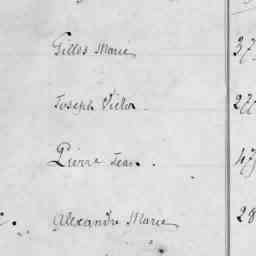 Gilles Marie 37
Joseph Victor 270
Pierre Jean. 47
Alexandre Marie 28